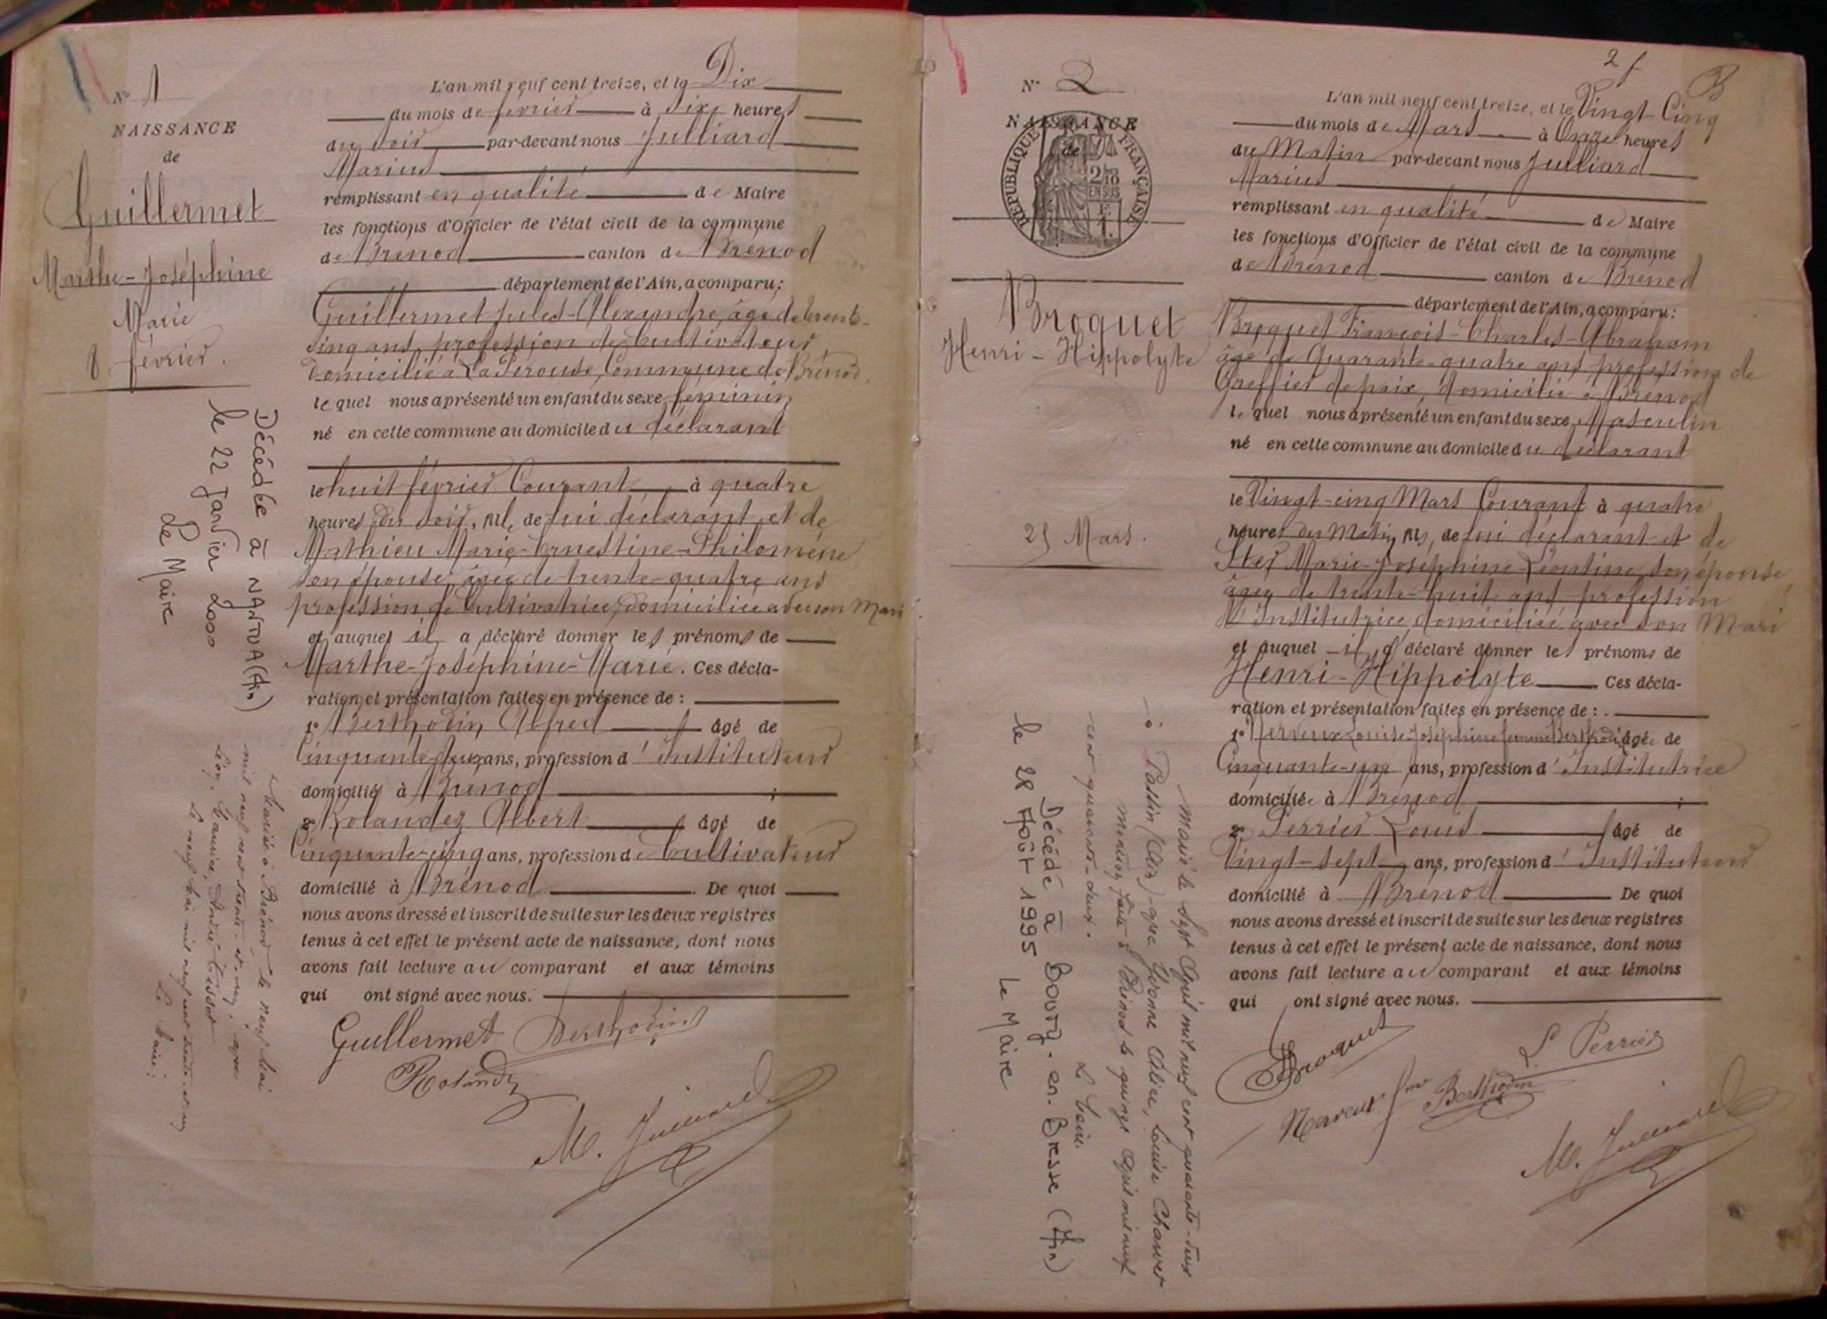 N° 1
NAISSANCE
de
Guillermet
Marthe-Joséphine
Marie
8 février.
Décédée à NANTUA (Ain)
le 22 Janvier 2000
Le Maire
Mariée à Brénod le neuf Mai
mil neuf cent trente-et-un, avec
Le neuf Mai mil neuf cent trente-et-un
Le Maire:
L'an mil neuf cent treize, et le Dix
du mois de février à Six heures
du soir par-devant nous Julliard
Marius
remplissant en qualité de Maire
les fonctions d'Officier de l'état civil de la commune
de Brénod canton de Brénod
département de l'Ain, a comparu:
Guillermet Jules-Alexandre, âgé de trente-
cinq ans, profession de Cultivateur,
domicilié à La Pérouse, Commune de Brénod.
lequel nous a présenté un enfant du sexe féminin
né en cette commune au domicile du déclarant
le huit février Courant à quatre
heures du soir, fille de lui déclarant et de
Mathieu Marie-Ernestine-Philomène
son épouse, âgée de trente-quatre ans
profession de Cultivatrice, domiciliée avec son Mari
et auquel il a déclaré donner les prénoms de
Marthe-Joséphine-Marie. Ces décla-
ration et présentation faites en présence de:
1° Berthodin Alfred âgé de
Cinquante ans, profession d'Instituteur
domicilié à Brénod;
2° Rolandez Albert âgé de
Cinquante-cinq ans, profession de Cultivateur
domicilié à Brénod. De quoi
nous avons dressé et inscrit de suite sur les deux registres
tenus à cet effet le présent acte de naissance, dont nous
avons fait lecture au comparant et aux témoins
qui ont signé avec nous.
Guillermet Berthodin
Rolandez
M. Julliard
2 f
B
N° 2
NAISSANCE
de
RÉPUBLIQUE FRANÇAISE
Broquet
Henri-Hippolyte
25 Mars.
Marié le Sept Avril mil neuf cent quarante-deux
à Passin (Ain) avec Yvonne Alice, Louise Charvet
Mention faite à Brénod le quinze Avril mil neuf
cent quarante-deux.
Le Maire.
Décédé à Bourg-en-Bresse (Ain)
le 28 Août 1995
Le Maire
L'an mil neuf cent treize, et le Vingt-Cinq
du mois de Mars à Onze heures
du Matin par-devant nous Julliard
Marius
remplissant en qualité de Maire
les fonctions d'Officier de l'état civil de la commune
de Brénod canton de Brénod
département de l'Ain, a comparu:
Broquet François-Charles-Abraham
âgé de Quarante-quatre ans profession de
Greffier de paix, domicilié à Brénod
lequel nous a présenté un enfant du sexe Masculin
né en cette commune au domicile du déclarant
le Vingt-cinq Mars Courant à quatre
heures du Matin, fils, de lui déclarant et de
Marie-Joséphine-Léontine, son épouse
âgée de trente-huit ans profession
d'Institutrice, domiciliée avec son Mari
et auquel il a déclaré donner les prénoms de
Henri-Hippolyte Ces décla-
ration et présentation faites en présence de:
1° Louise-Joséphine femme Berthodin âgée de
Cinquante-un ans, profession d'Institutrice
domiciliée à Brénod;
2° Perrier Louis âgé de
Vingt-sept ans, profession d'Instituteur
domicilié à Brénod De quoi
nous avons dressé et inscrit de suite sur les deux registres
tenus à cet effet le présent acte de naissance, dont nous
avons fait lecture au comparant et aux témoins
qui ont signé avec nous.
Broquet L. Perrier
fme Berthodin
M. Julliard